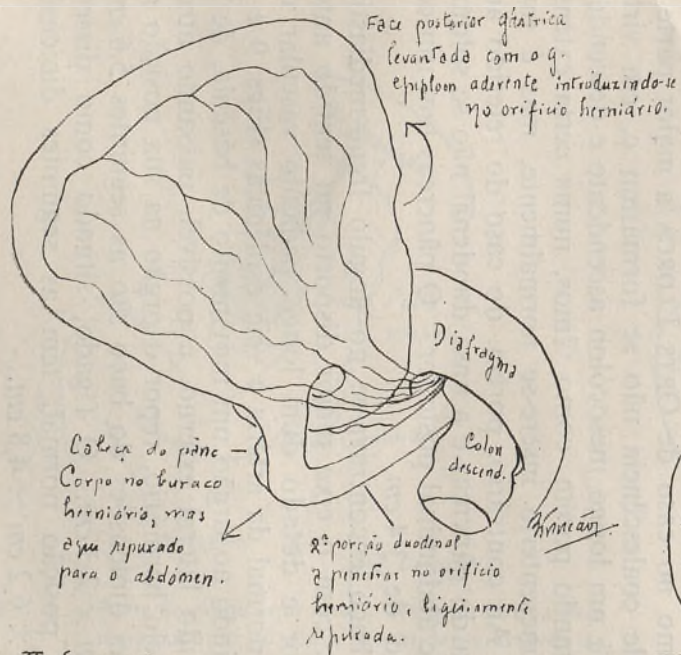 Face posterior gástrica
levantada com o g.
epiploon aderente introduzindo-se
no orifício herniário.
Diafragma
Colon
descend.
Cabeça do pânc
Corpo no buraco
herniário, mas
aqui repuxado
para o abdómen.
2ª porção duodenal
a penetrar no orifício
herniário, ligeiramente
repuxada.